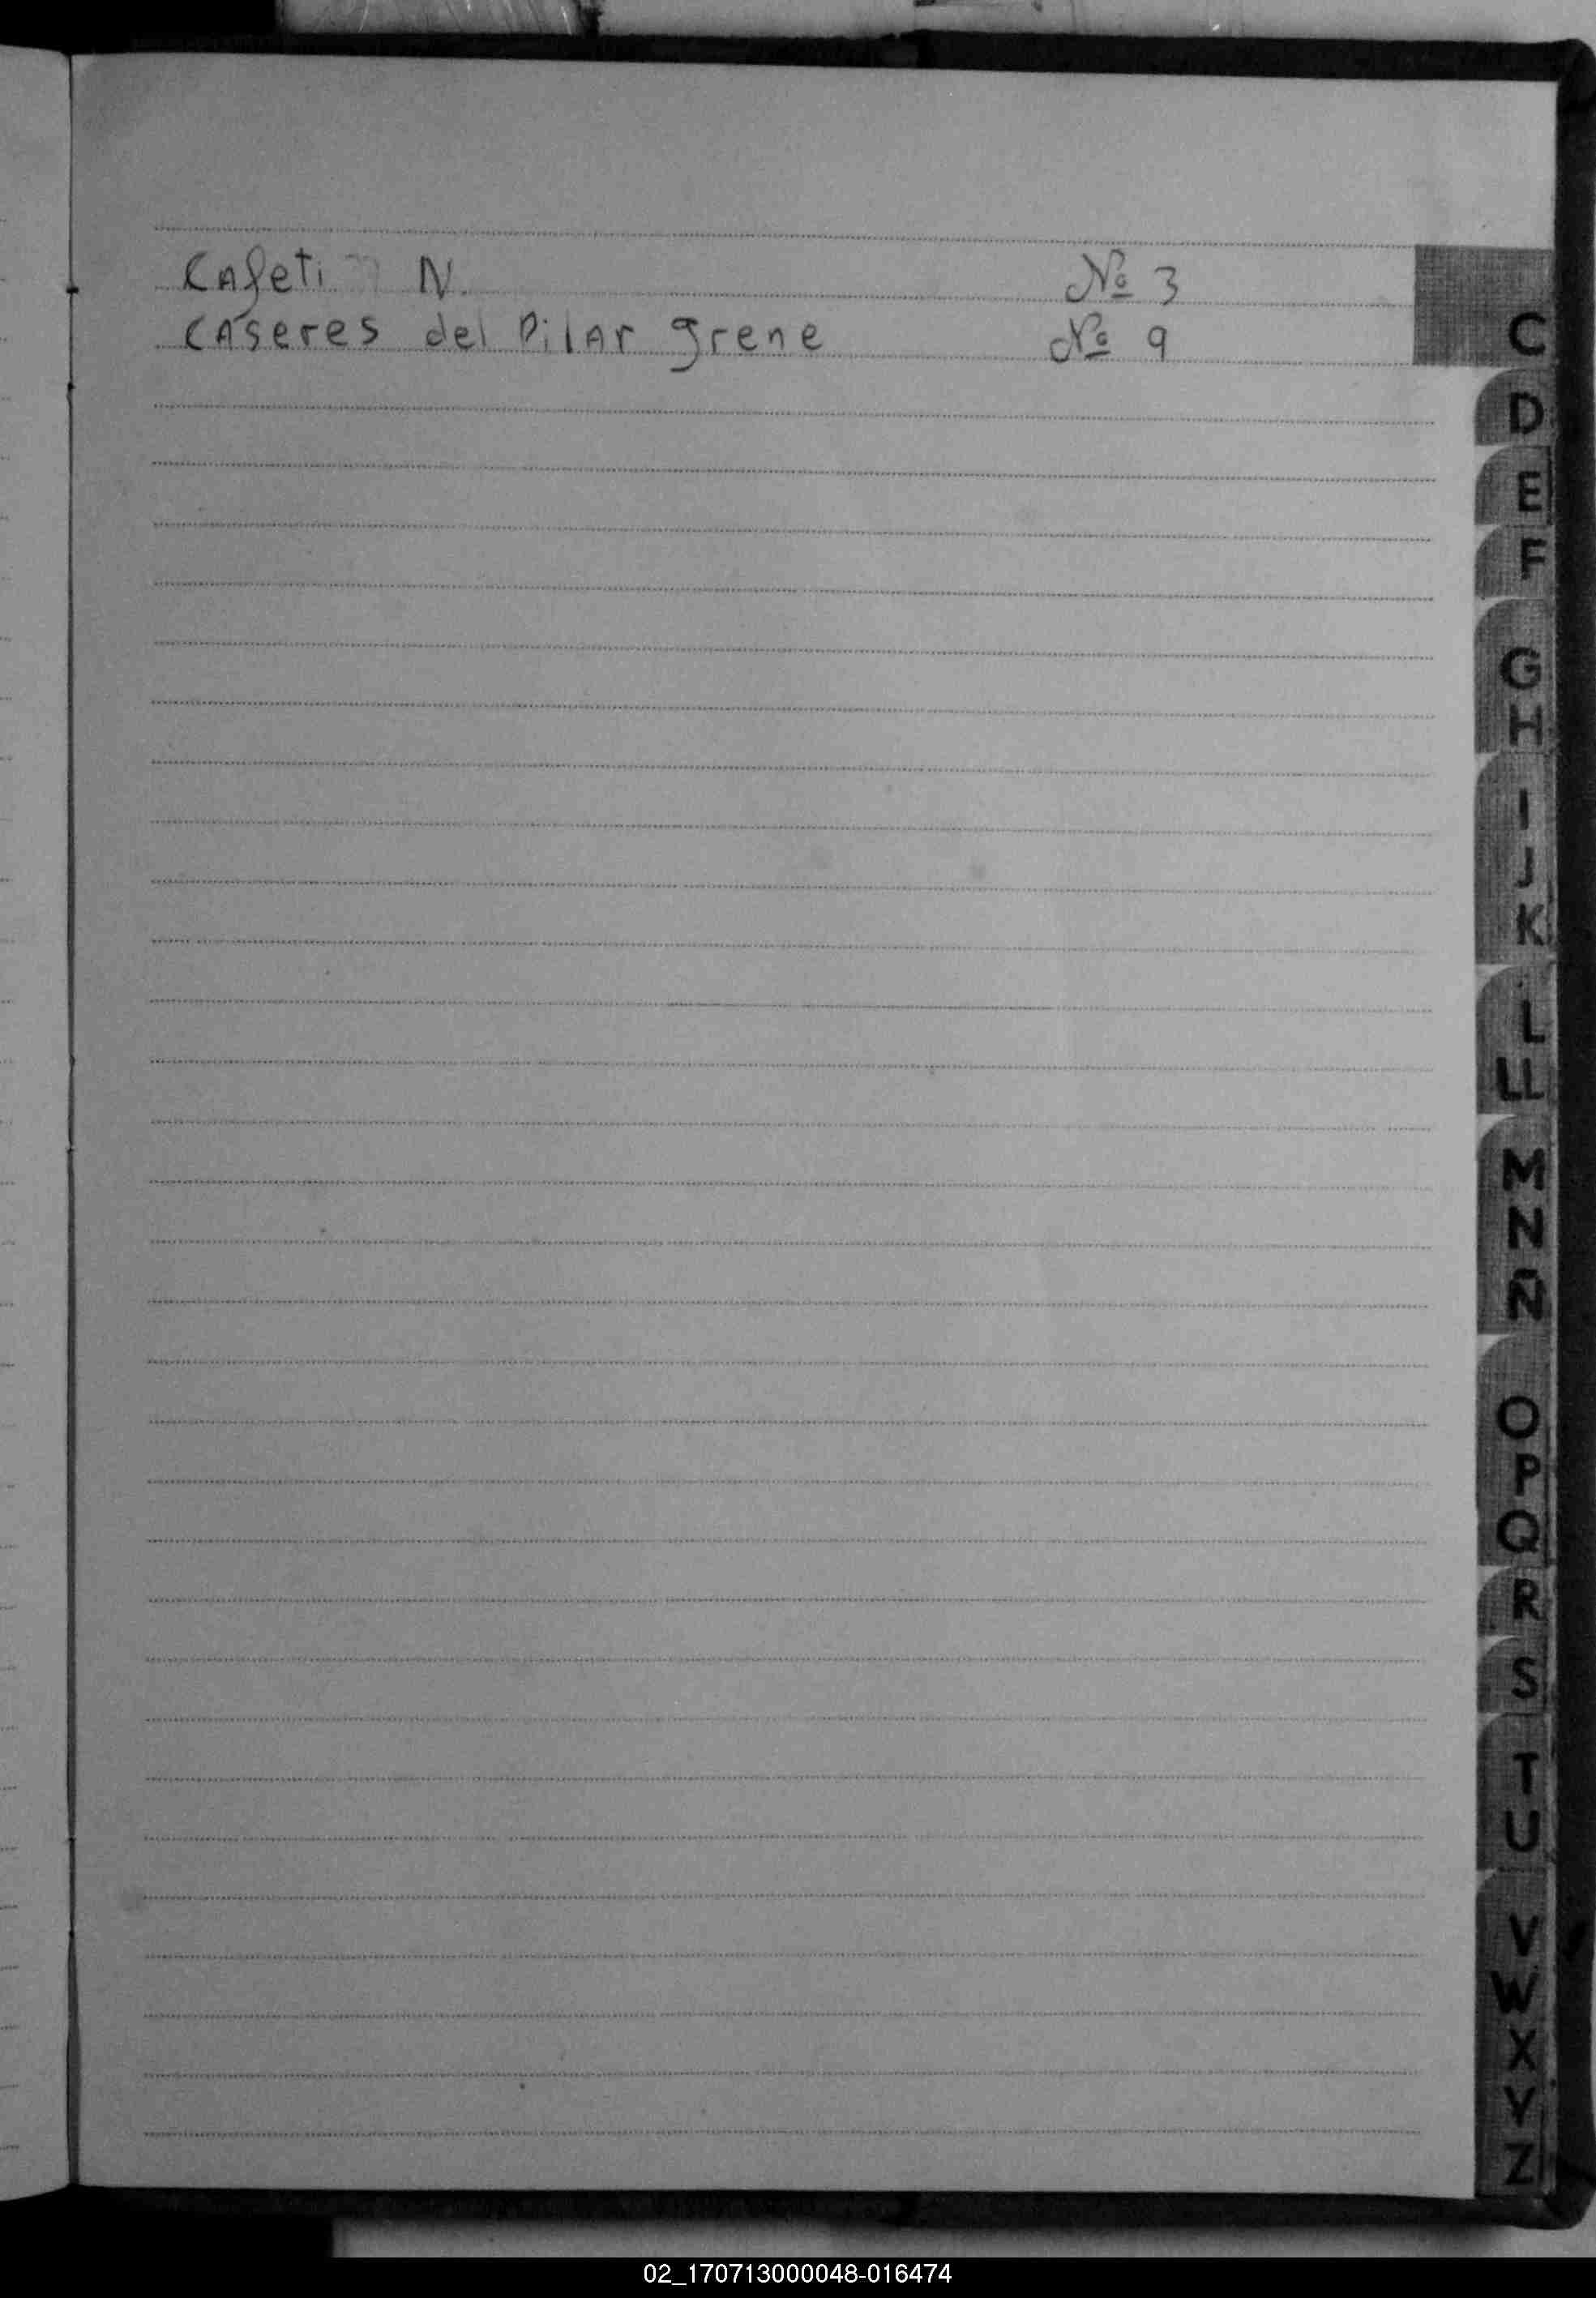 Cafeti N. Nº 3
Caseres del Pilar grene Nº 9
C
D
E
F
G
H
I
J
K
L
LL
M
N
Ñ
O
P
Q
R
S
T
U
V
W
X
Y
Z
02_170713000048-016474